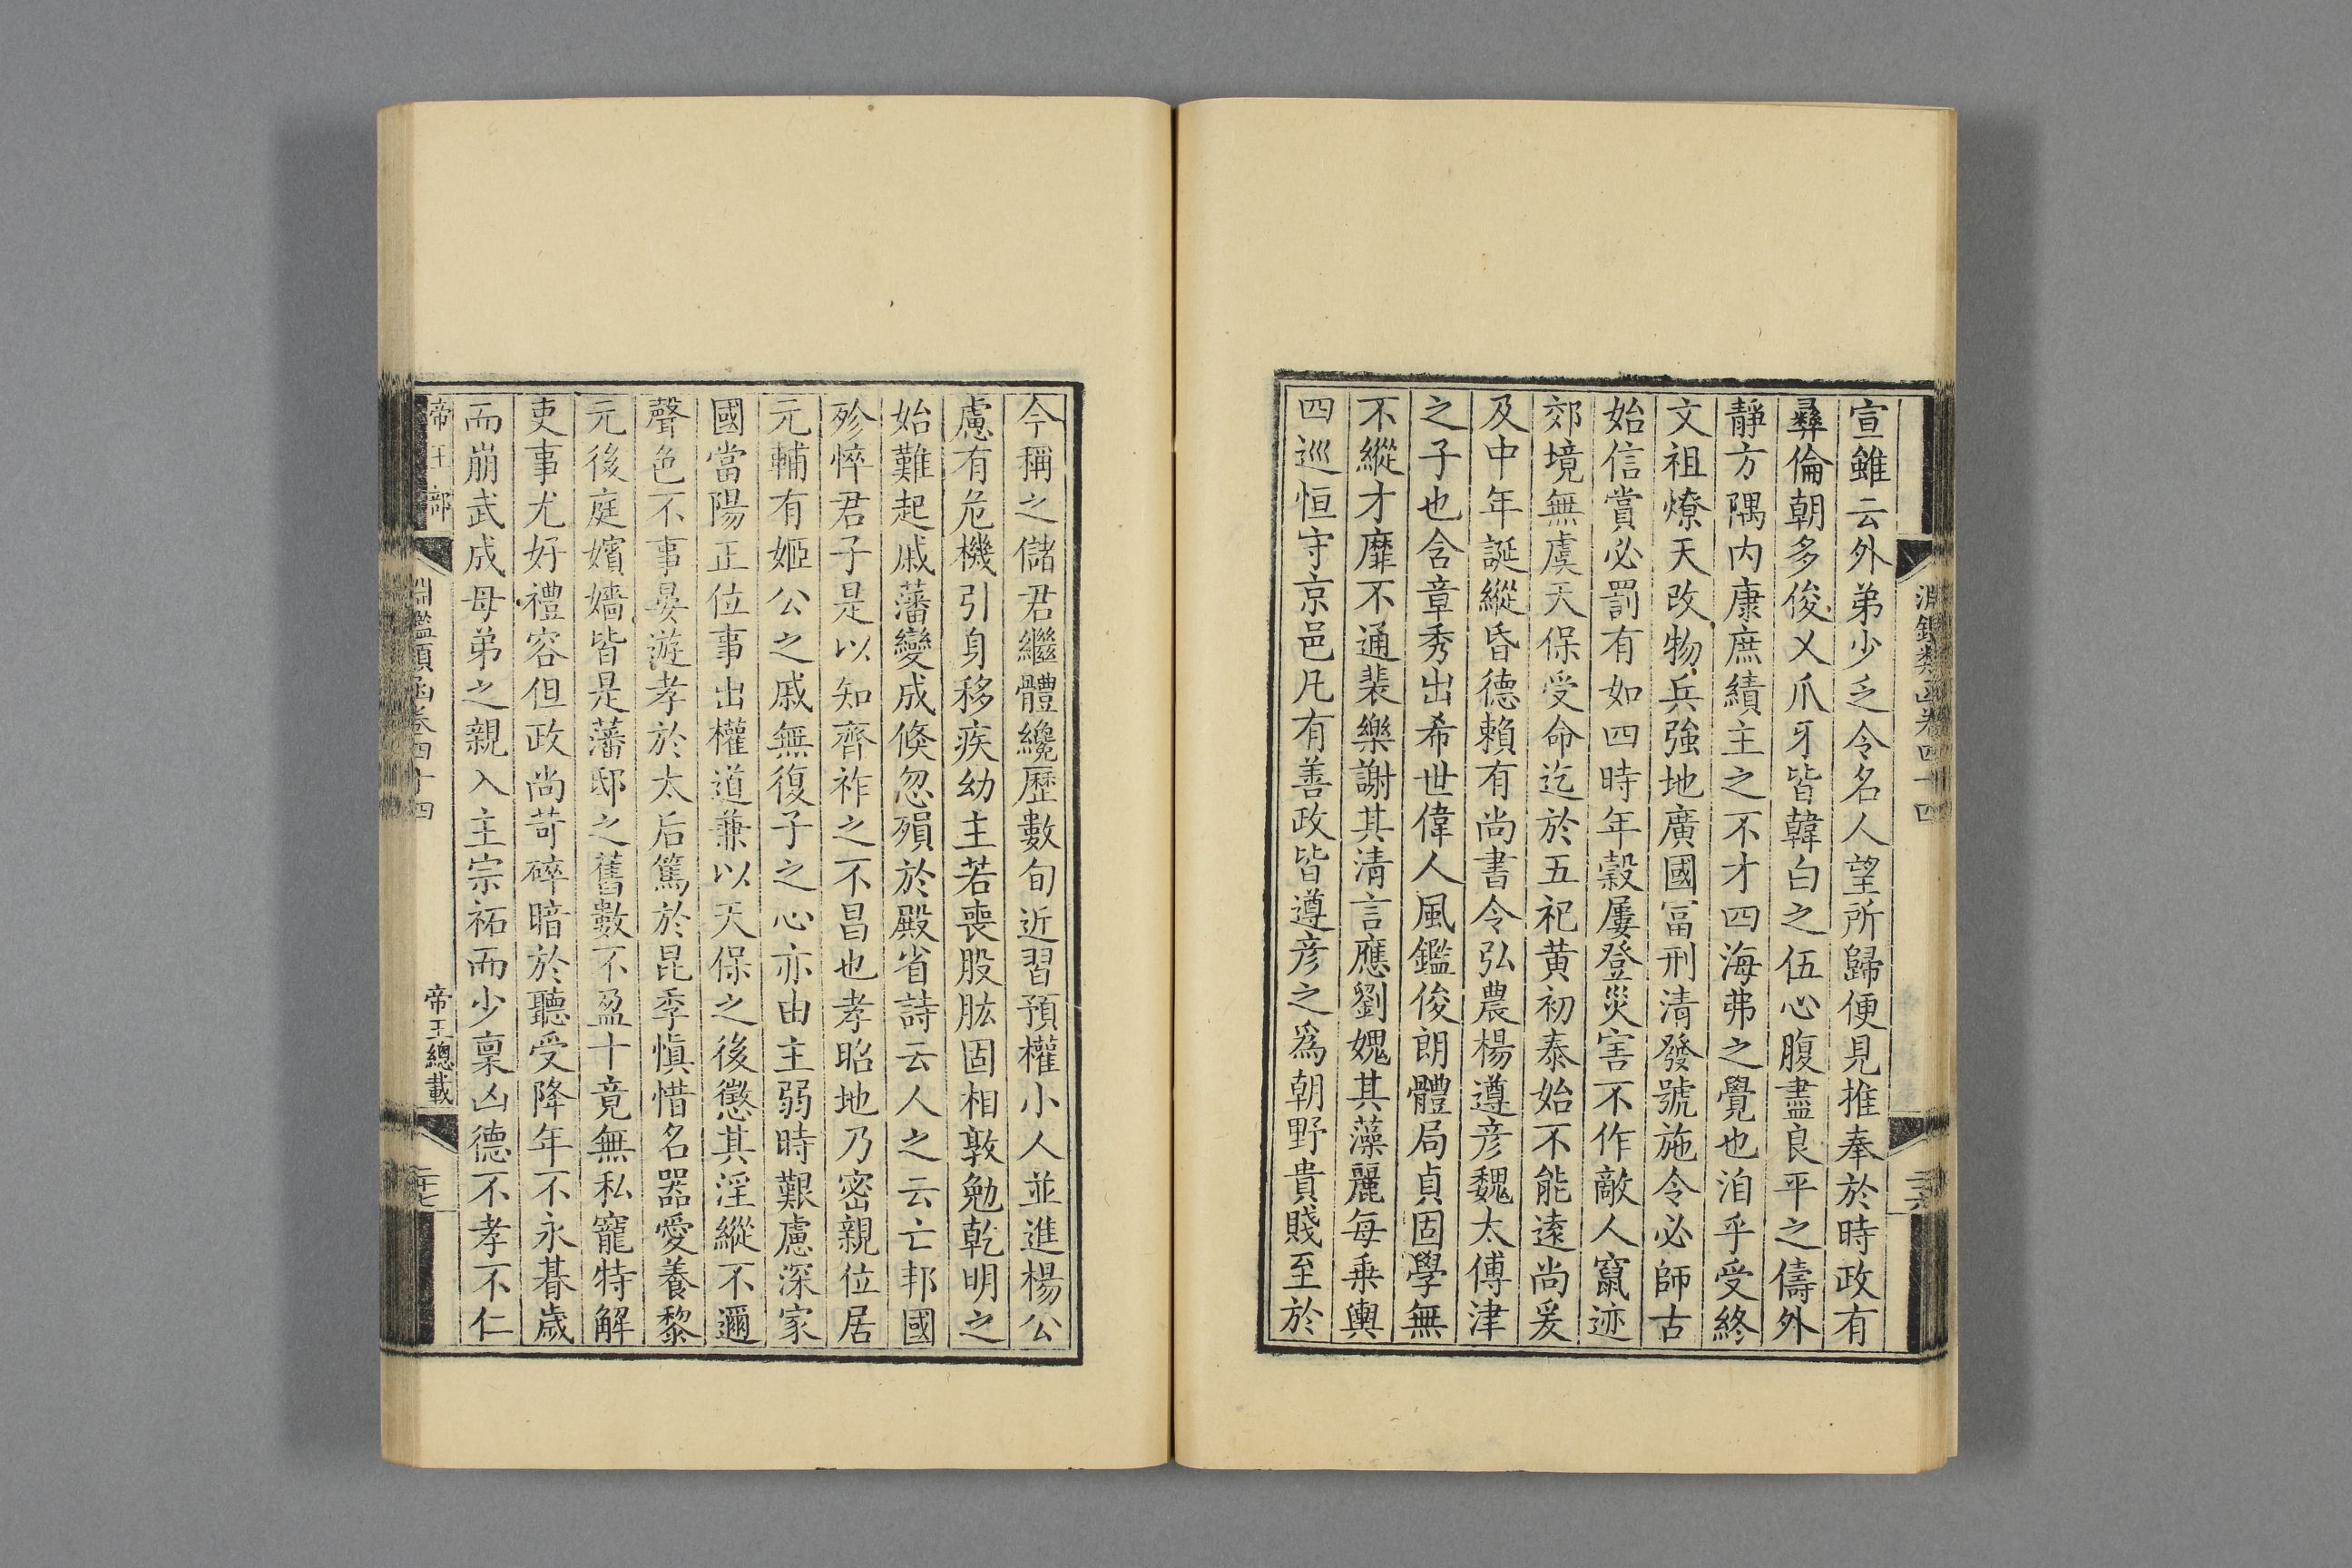 淵鑑類函卷四十四
二十六
宣雖云外弟少乏令名人望所歸便見推奉於時政有
彝倫朝多俊乂爪牙皆韓白之伍心腹盡良平之儔外
靜方隅内康庶績主之不才四海弗之覺也洎乎受終
文祖燎天改物兵強地廣國冨刑清發號施令必師古
始信賞必罰有如四時年穀屢登災害不作敵人竄迹
郊境無虞天保受命迄於五祀黄初泰始不能遠尚爰
及中年誕縱昏德賴有尚書令弘農楊遵彦魏太傅津
之子也含章秀出希世偉人風鑑俊朗體局貞固學無
不縱才靡不通裴樂謝其清言應劉媿其藻麗每乗輿
四巡恒守京邑凡有善政皆遵彦之爲朝野貴賤至於
今稱之儲君繼體纔歷數旬近習預權小人並進楊公
慮有危機引身移疾幼主若喪股肱固相敦勉乾明之
始難起戚藩變成倏忽殞於殿省詩云人之云亡邦國
殄悴君子是以知齊祚之不昌也孝昭地乃密親位居
元輔有姬公之戚無復子之心亦由主弱時艱慮深家
國當陽正位事出權道兼以天保之後懲其淫縱不邇
聲色不事晏游孝於太后篤於昆季愼惜名器愛養黎
元後庭嬪嬙皆是藩邸之舊數不盈十竟無私寵特解
吏事尤好禮容但政尚苛碎暗於聽受降年不永朞歲
而崩武成母弟之親入主宗祏而少稟凶德不孝不仁
帝王部
淵鑑類函卷四十四
帝王總載
二十七